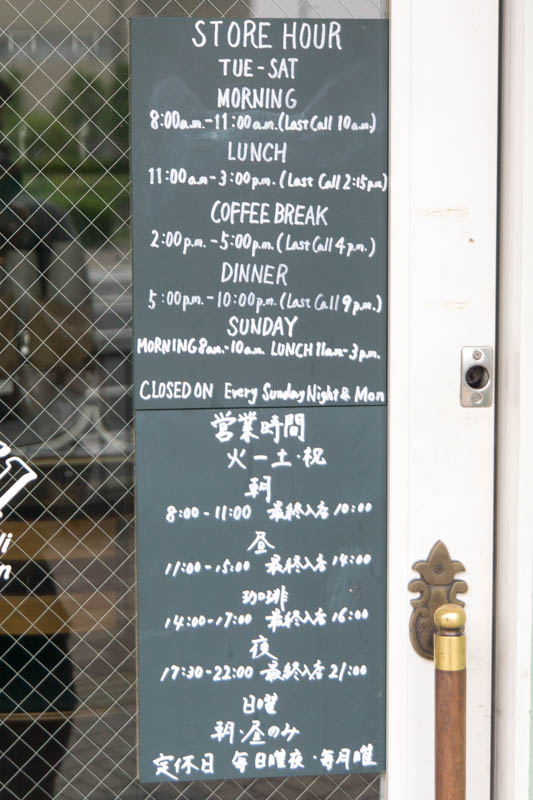 STORE HOUR
TUE-SAT
MORNING
8:00a.m.-11:00a.m.(Last Call 10a.m.)
LUNCH
11:00a.m-3:00p.m.(Last Call 2:15p.m)
COFFEE BREAK
2:00p.m.-5:00p.m.(Last Call 4p.m.)
DINNER
5:00p.m.-10:00p.m.(Last Call 9p.m.)
SUNDAY
MORNING8am.-10a.m. LUNCH11am-3p.m.
CLOSED ON Every Sunday Night & Mon
営業時間
火ー土・祝
朝
8:00-11:00 最終入店10:00
昼
11:00-15:00 最終入店14:00
珈琲
14:00-17:00 最終入店16:00
夜
17:30-22:00 最終入店21:00
日曜
朝・昼のみ
定休日 毎日曜夜・毎月曜